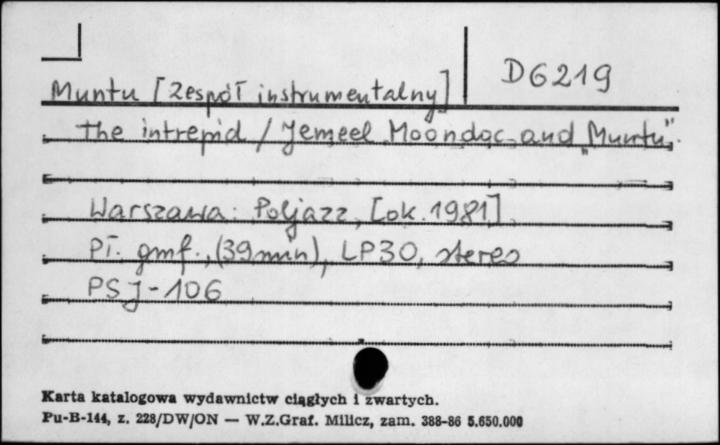 D6219
Muntu [zespół instrumentalny]
The intrepid / Jemeel Moondoc and „Muntu".
Warszawa: Poljazz, [ok. 1981]
Pł. gmf., (39 min), LP30, stereo
PSJ-106
Karta katalogowa wydawnictw ciągłych i zwartych.
Pu-B-144, z. 228/DW/ON — W.Z.Graf. Milicz, zam. 388-86 5.650.000